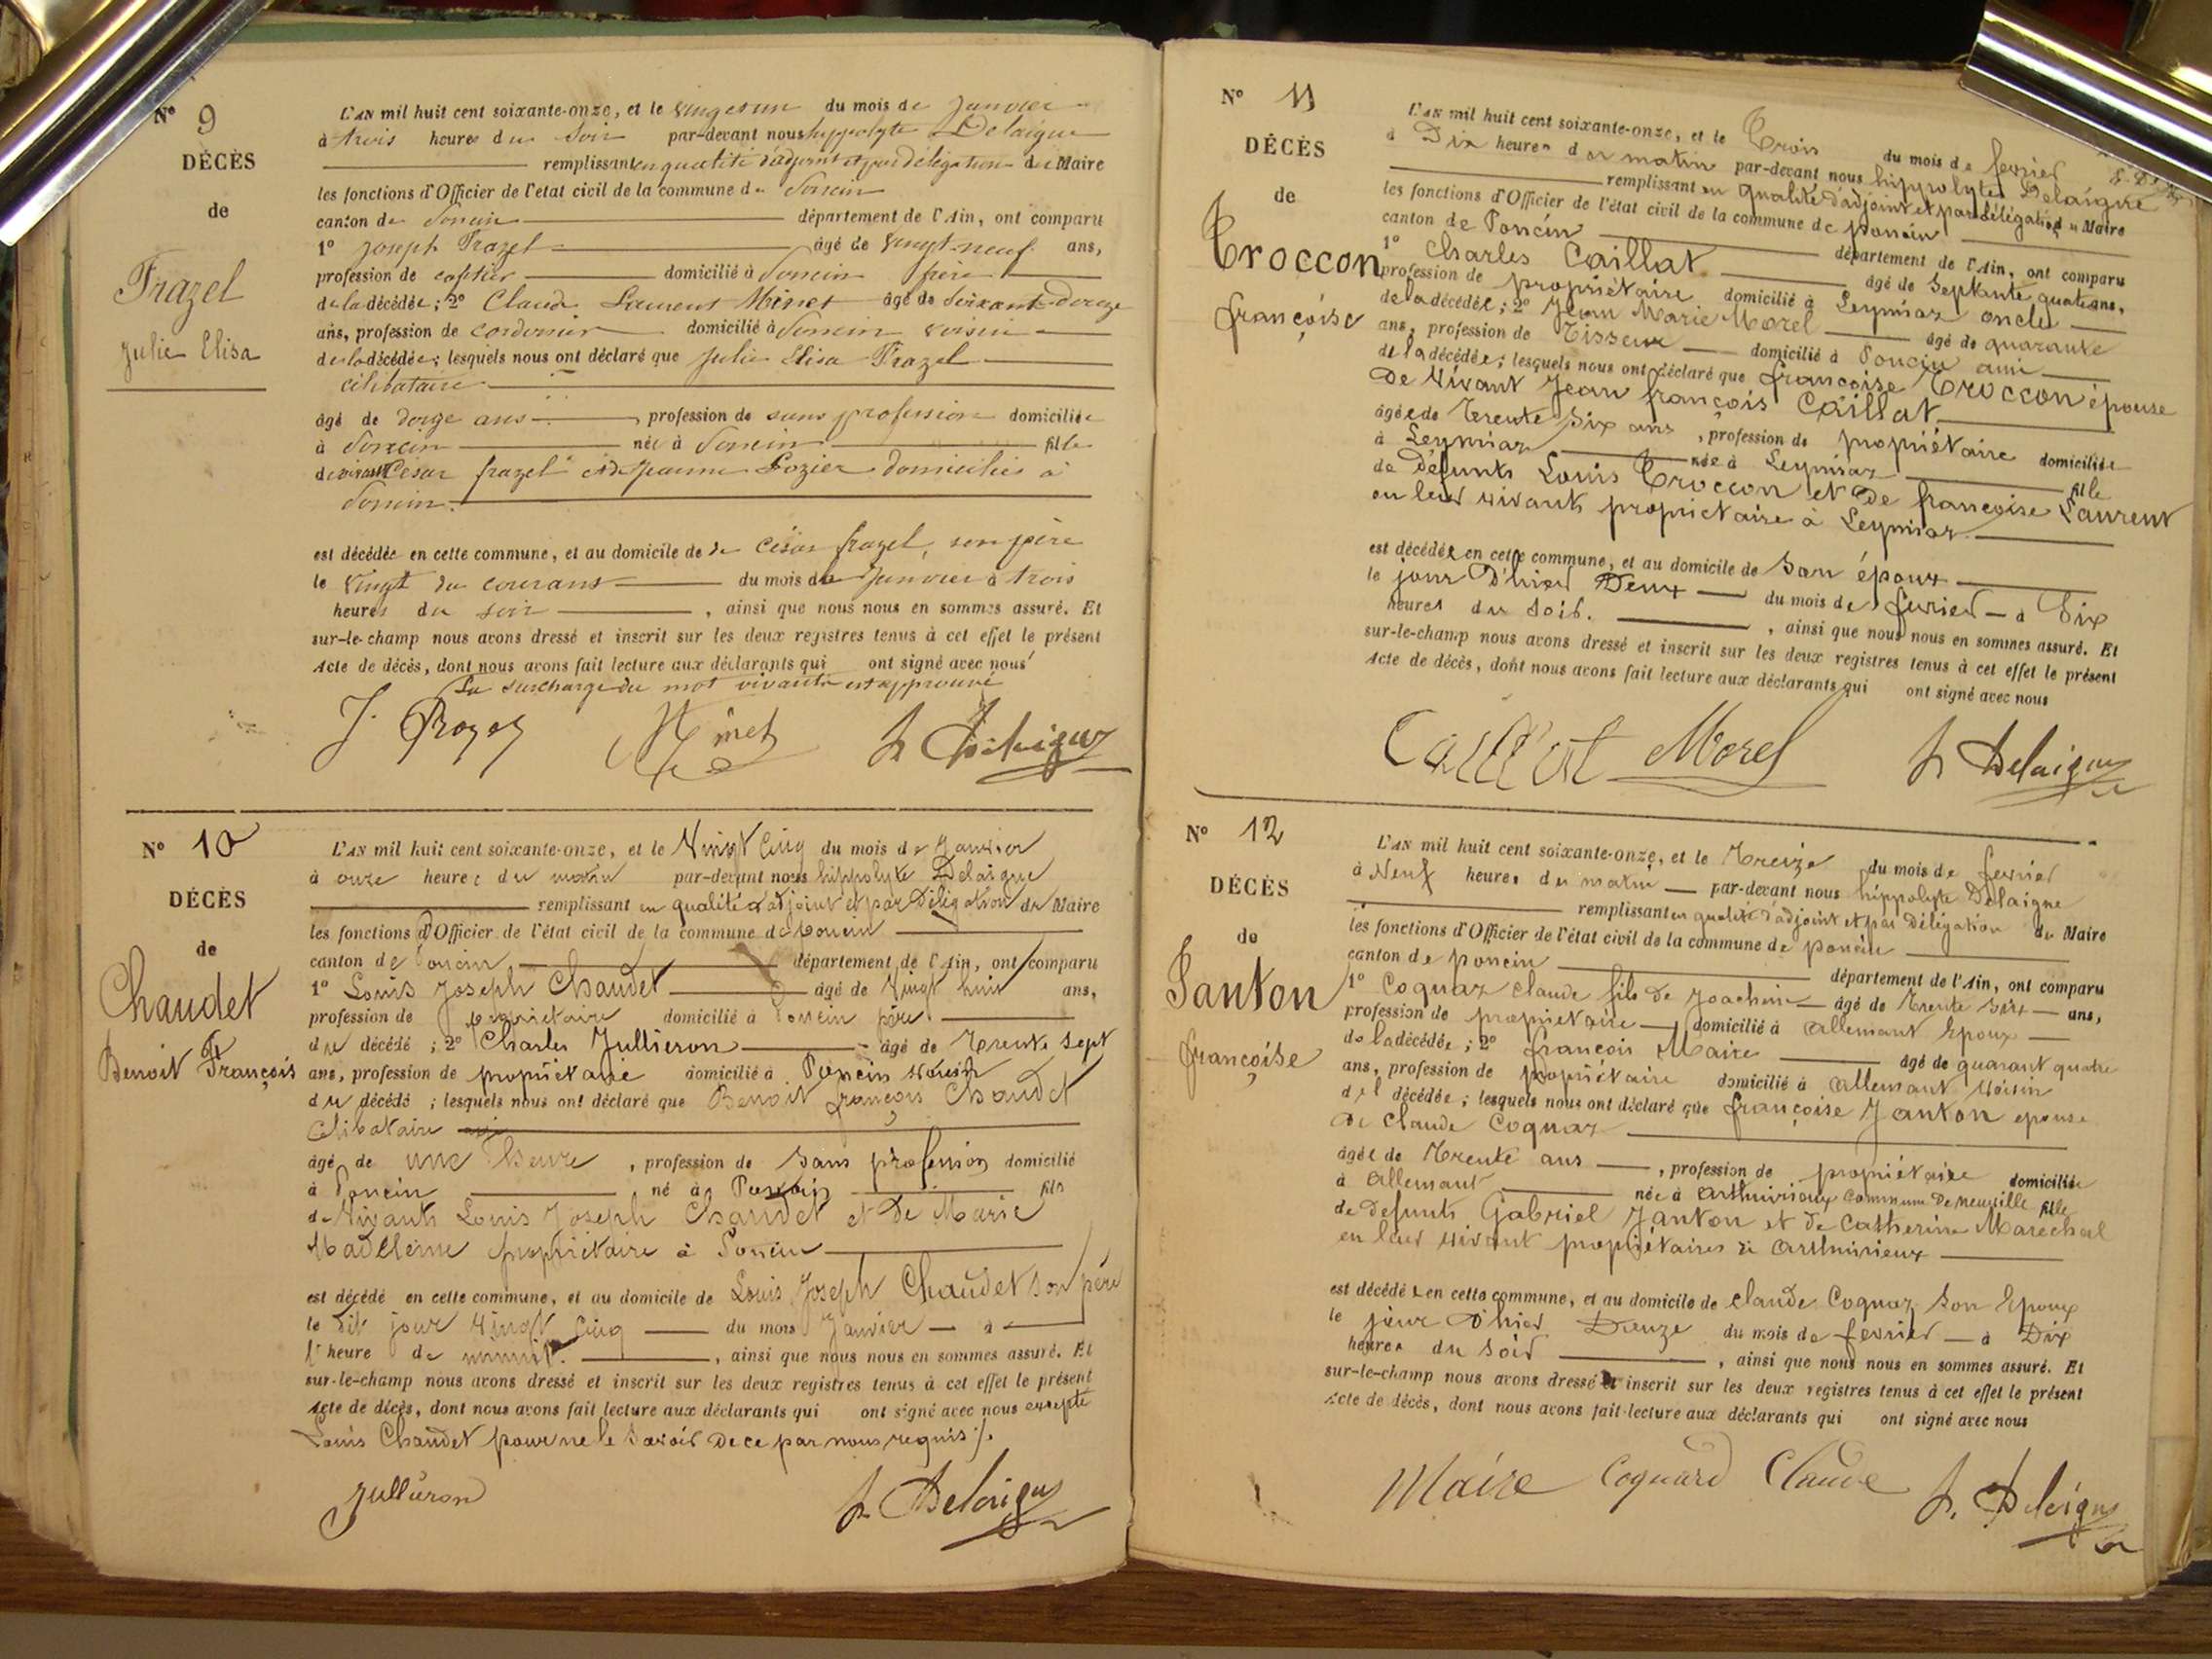 N° 9
DÉCÈS
de
Frazel
Julie Elisa
L'AN mil huit cent soixante-onze, et le vingt et un du mois de Janvier
à trois heures du Soir par-devant nous hippolyte Delaigue
remplissant en qualité d'adjoint et par délégation du Maire
les fonctions d'Officier de l'état civil de la commune de Poncin
canton de Poncin département de l'Ain, ont comparu
1° Joseph Frazel âgé de vingt-neuf ans,
profession de domicilié à Poncin frère
de la décédée; 2° Claude Laurent Minet âgé de soixante-douze
ans, profession de cordonnier domicilié à Poncin voisin
de la décédée; lesquels nous ont déclaré que Julie Elisa Frazel
célibataire
âgé de douze ans profession de sans profession domiciliée
à Poncin née à Poncin fille
de vivants César frazel et de Jeanne Lozier domiciliés à
Poncin.
est décédée en cette commune, et au domicile de de César frazel, son père
le Vingt du courant du mois de Janvier à trois
heures du soir, ainsi que nous nous en sommes assuré. Et
sur-le-champ nous avons dressé et inscrit sur les deux registres tenus à cet effet le présent
Acte de décès, dont nous avons fait lecture aux déclarants qui ont signé avec nous
La surcharge du mot vivants est approuvé
J. Minet h Delaigue
N° 10
DÉCÈS
de
Chaudet
Benoit François
L'AN mil huit cent soixante-onze, et le Vingt Cinq du mois de Janvier
à onze heures du matin par-devant nous hippolyte Delaigue
remplissant en qualité d'adjoint et par Délégation du Maire
les fonctions d'Officier de l'état civil de la commune de Poncin
canton de Poncin département de l'Ain, ont comparu
1° Louis Joseph Chaudet âgé de Vingt huit ans,
profession de propriétaire domicilié à Poncin père
du décédé; 2° Charles Jullieron âgé de Trente Sept
ans, profession de propriétaire domicilié à Poncin voisin
du décédé; lesquels nous ont déclaré que Benoit françois Chaudet
Célibataire
âgé de une heure, profession de Sans profession domicilié
à Poncin, né à Poncin fils
de Vivants Louis Joseph Chaudet et De Marie
Madeleine propriétaire à Poncin
est décédé en cette commune, et au domicile de Louis Joseph Chaudet son père
le dit jour vingt cinq du mois Janvier à
l'heure de minuit., ainsi que nous nous en sommes assuré. Et
sur-le-champ nous avons dressé et inscrit sur les deux registres tenus à cet effet le présent
Acte de décès, dont nous avons fait lecture aux déclarants qui ont signé avec nous excepté
Louis Chaudet pour ne le Savoir De ce par nous requis ./.
Jullieron h Delaigue
N° 11
DÉCÈS
de
Troccon
françoise
L'AN mil huit cent soixante-onze, et le Trois du mois de fevrier
à Dix heures du matin par-devant nous hippolyte Delaigue
remplissant en qualité d'adjoint et par Délégation du Maire
les fonctions d'Officier de l'état civil de la commune de poncin
canton de Poncin département de l'Ain, ont comparu
1° Charles Caillat âgé de Septante quatre ans,
profession de propriétaire domicilié à Leymiaz oncle
de la décédée; 2° Jean Marie Morel âgé de quarante
ans, profession de Tisseur domicilié à Poncin ami
de la décédée; lesquels nous ont déclaré que françoise Troccon épouse
De Vivant Jean françois Caillat
âgée de Trente Six ans, profession de propriétaire domiciliée
à Leymiaz née à Leymiaz fille
de Défunts Louis Troccon et De françoise Laurent
en leur vivants propriétaire à Leymiaz
est décédée en cette commune, et au domicile de Son époux
le jour D'hier Deux du mois de fevrier à Six
heures du Soir., ainsi que nous nous en sommes assuré. Et
sur-le-champ nous avons dressé et inscrit sur les deux registres tenus à cet effet le présent
Acte de décès, dont nous avons fait lecture aux déclarants qui ont signé avec nous
Caillat Morel h Delaigue
N° 12
DÉCÈS
de
Janton
françoise
L'AN mil huit cent soixante-onze, et le Treize du mois de fevrier
à Neuf heures du matin par-devant nous hippolyte Delaigue
remplissant en qualité d'adjoint et par Délégation du Maire
les fonctions d'Officier de l'état civil de la commune de poncin
canton de poncin département de l'Ain, ont comparu
1° Coquaz claude fils de Joachim âgé de Trente Six ans,
profession de propriétaire domicilié à allemant Epoux
de la décédée; 2° françois Maire âgé de quarant quatre
ans, profession de propriétaire domicilié à allemant Voisin
de l décédée; lesquels nous ont déclaré que françoise Janton epouse
De Claude Coquaz
âgée de Trente ans, profession de propriétaire domiciliée
à allemant née à arthurieux Commune De neuville fille
de defunts Gabriel Janton et de Catherine Marechal
en leur vivant propriétaires à arthurieux
est décédée en cette commune, et au domicile de claude Coquaz Son Epoux
le jour D'hier Douze du mois de fevrier à Dix
heures du Soir, ainsi que nous nous en sommes assuré. Et
sur-le-champ nous avons dressé et inscrit sur les deux registres tenus à cet effet le présent
Acte de décès, dont nous avons fait lecture aux déclarants qui ont signé avec nous
Maire Coquard Claude h. Delaigue